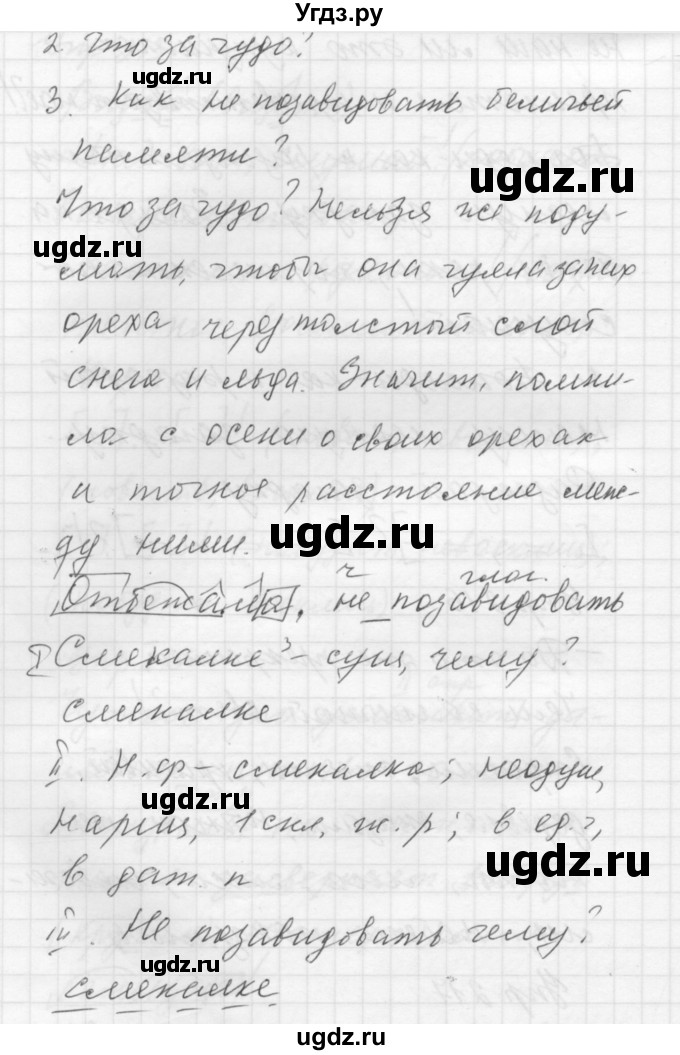 Угдз.ру
2. Что за чудо?
3. Как не позавидовать беличьей
памяти?
Что за чудо? Нельзя же поду-
мать, чтобы она чуяла запах
ореха через толстый слой
снега и льда. Значит, помни-
ла с осени о своих орехах
и точное расстояние меж-
ду ними.
ч глаг.
Отбежала, не позавидовать
I Смекалке³ – сущ, чему?
смекалке
II. Н.ф – смекалка; неодуш,
нариц, 1 скл, ж. р; в ед.ч,
в дат. п
III. Не позавидовать чему?
смекалке
ugdz.ru
ugdz.ru
ugdz.ru
ugdz.ru
ugdz.ru
ugdz.ru
ugdz.ru
ugdz.ru
ugdz.ru